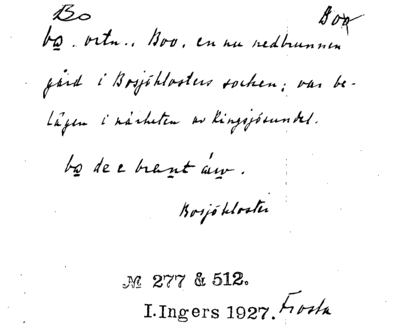 Bo Boo
bo, ortn., Boo, en nu nedbrunnen
gård i Bosjöklosters socken; var be-
lägen i närheten av Ringsjösundet.
bo de e brant áw.
Bosjökloster
№ 277 & 512.
I. Ingers 1927. Frosta